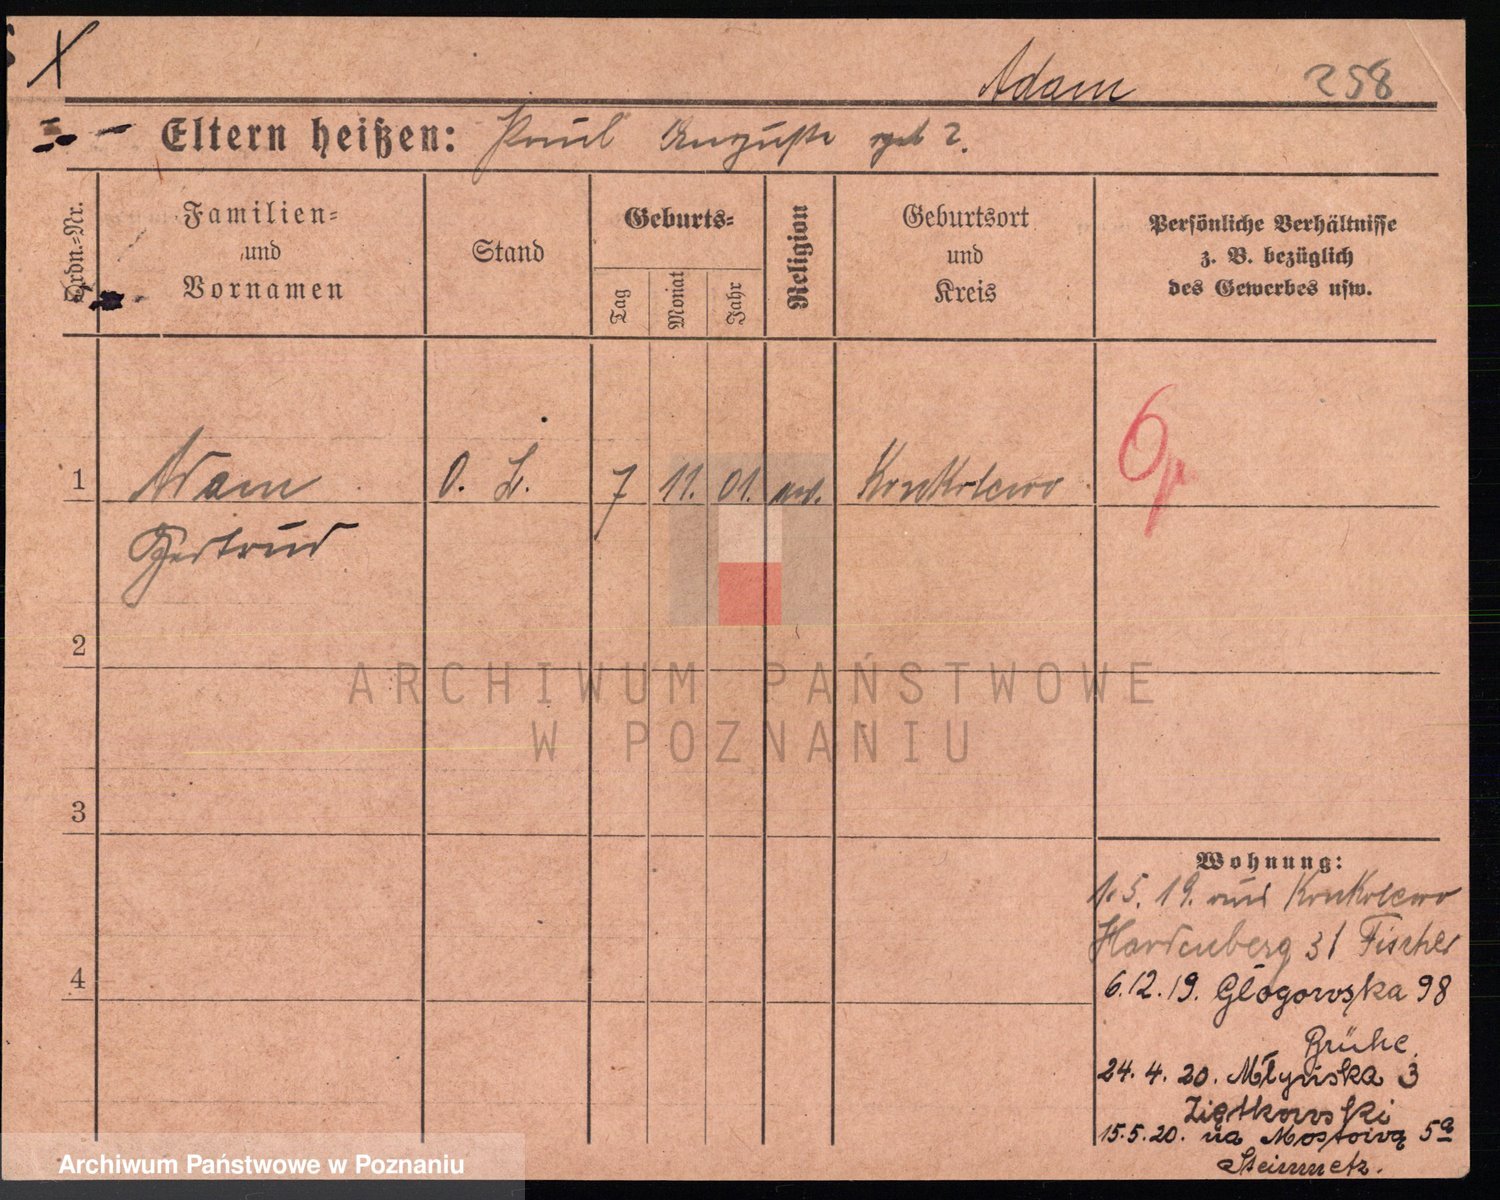 X
Adam 258
Eltern heißen: Paul Auguste geb ?.
Ordn.=Nr.
Familien=
und
Vornamen
Stand
Geburts=
Tag
Monat
Jahr
Religion
Geburtsort
und
Kreis
Persönliche Verhältnisse
z. B. bezüglich
des Gewerbes usw.
1 Adam O. L. 7 11. 01. Konkolewo
Gertrud
2
3
4
Wohnung:
1.5.19. Konkolewo
Hardenberg 31 Fischer
6.12.19. Głogowska 98
24.4.20. Młyńska 3
Ziętkowski
15.5.20. na Mostową 5a
Steinmetz.
ARCHIWUM PAŃSTWOWE
W POZNANIU
Archiwum Państwowe w Poznaniu